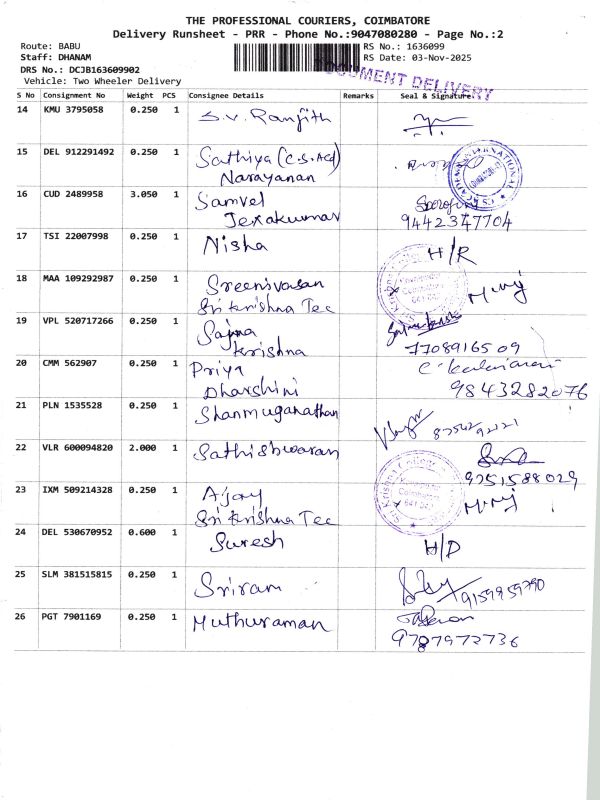 THE PROFESSIONAL COURIERS, COIMBATORE
Delivery Runsheet - PRR - Phone No.:9047080280 - Page No.:2
Route: BABU
RS No.: 1636099
Staff: DHANAM
RS Date: 03-Nov-2025
DRS No.: DCJB163609902
DOCUMENT DELIVERY
Vehicle: Two Wheeler Delivery
S No Consignment No Weight PCS Consignee Details Remarks Seal & Signature
14 KMU 3795058 0.250 1 S.V. Ranjith
15 DEL 912291492 0.250 1 Sathiya (C.S. Acd)
Narayanan
16 CUD 2489958 3.050 1 Samvel
Jexakumar
9442347704
17 TSI 22007998 0.250 1 Nisha H/R
18 MAA 109292987 0.250 1 Sreenivasan
Sri krishna Tec
19 VPL 520717266 0.250 1 Sajna
krishna
7708916509
20 CMM 562907 0.250 1 Priya
Dharshini
9843282076
21 PLN 1535528 0.250 1 Shanmuganathan
87542 92121
22 VLR 600094820 2.000 1 Sathishwaran
9251588029
23 IXM 509214328 0.250 1 Ajay
Sri krishna Tec
24 DEL 530670952 0.600 1 Suresh H/D
25 SLM 381515815 0.250 1 Sriram
9159959790
26 PGT 7901169 0.250 1 Muthuraman
9787972736